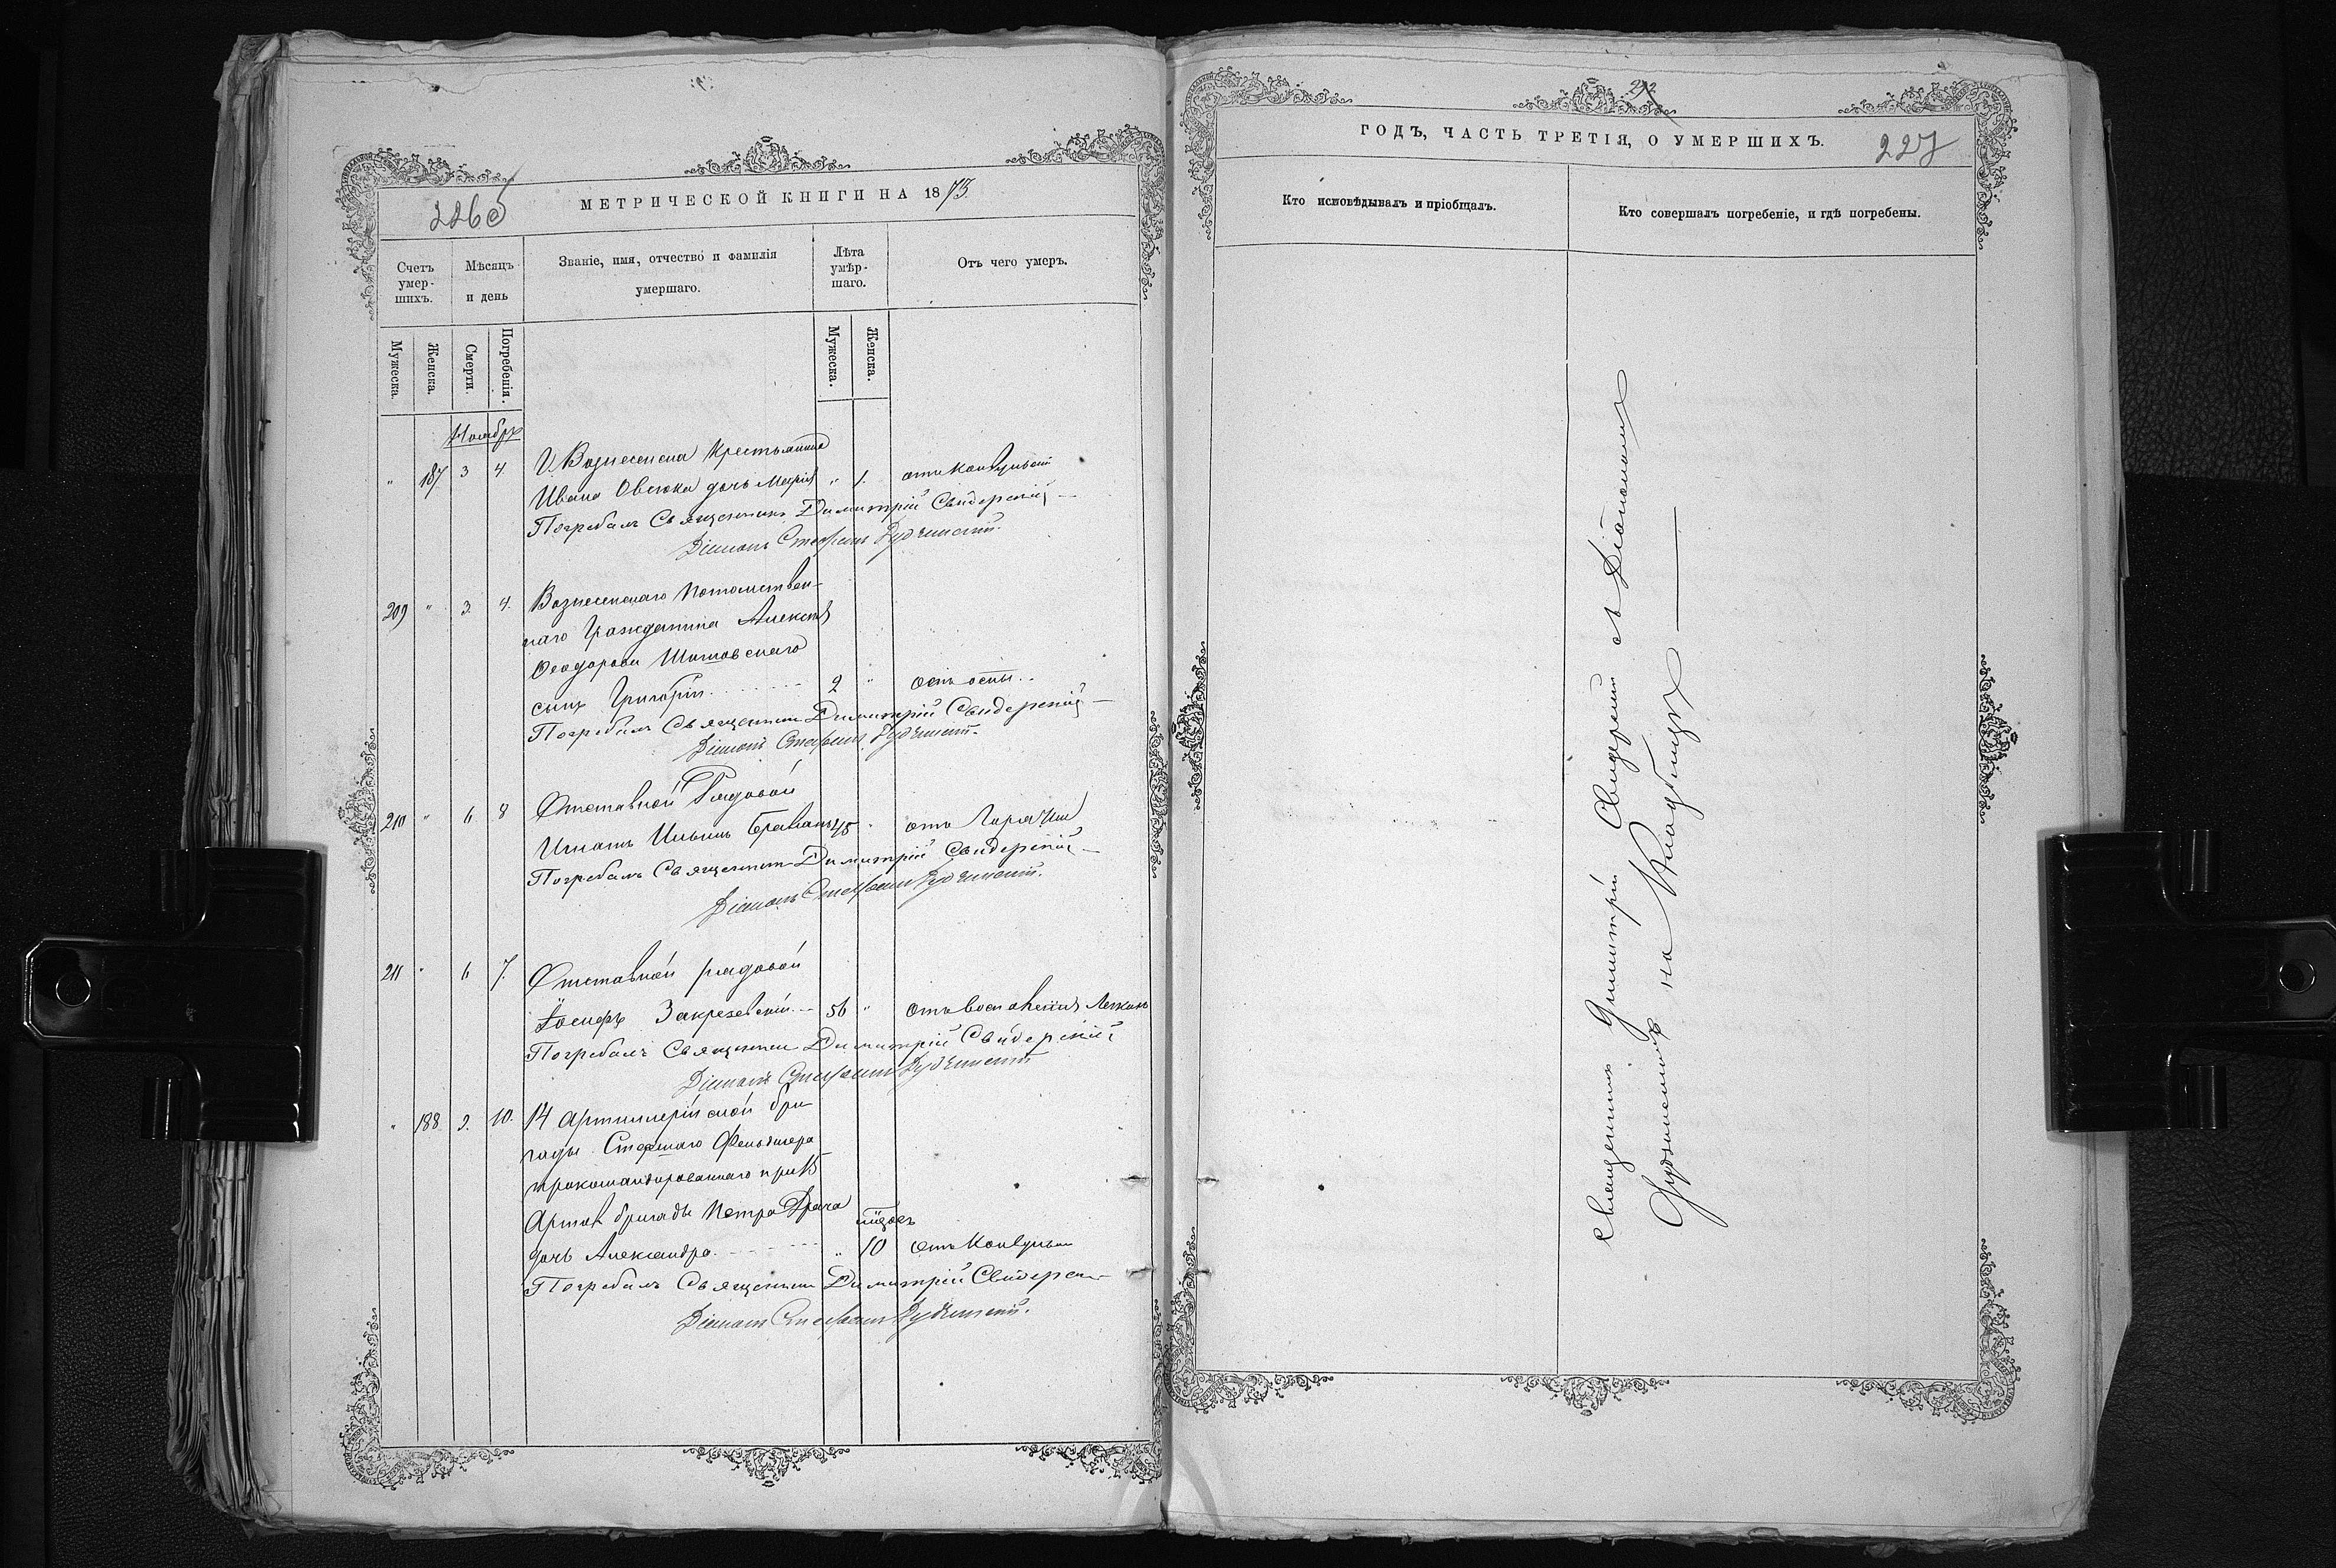 226 об
МЕТРИЧЕСКОЙ КНИГИ НА 1873.
Счетъ умер-шихъ.
Мѣсяцъ и день
Званіе, имя, отчество и фамилія умершаго.
Лѣта умѣр-шаго.
Отъ чего умеръ.
Мужеска.
Женска.
Смерти.
Погребенія.
Мужеска.
Женска.
Ноябрь
Г. Вознесенска Крестьянина
" 187 3 4. Ивана Овсюка дочь Марія " 1. отъ Конвульсій
Погребалъ Священникъ Димитрій Свидерскій
Діаконъ Стефанъ
209 " 3. 4. Вознесенскаго Потомствен-
наго Гражданина Алексѣя
Ѳеодорова
сынъ Григорій 2 " отъ оспы.
Погребалъ Священникъ Димитрій Свидерскій
Діаконъ Стефанъ
210 " 6 8 Отставной Рядовой
Игнатъ Ильинъ 45 " отъ Горячки
Погребалъ Священникъ Димитрій Свидерскій
Діаконъ Стефанъ
211 " 6 7. Отставной рядовой
Іосифъ Закревскій 56 " отъ воспаленія Легкихъ
Погребалъ Священникъ Димитрій Свидерскій
Діаконъ Стефанъ
" 188 9. 10. 14 Артиллерійской бри-
гады Старшаго Фельдшера
прикомандированнаго при 15
Артил бригадѣ Петра Драча
дочь Александра " 10 отъ Конвульсій
Погребалъ Священникъ Димитрій Свидерскій
Діаконъ Стефанъ
212
ГОДЪ, ЧАСТЬ ТРЕТІЯ, О УМЕРШИХЪ.
227
Кто исповѣдывалъ и пріобщалъ.
Кто совершалъ погребеніе, и гдѣ погребены.
Священникъ Димитрій Свидерскій съ Діакономъ
на Кладбищѣ